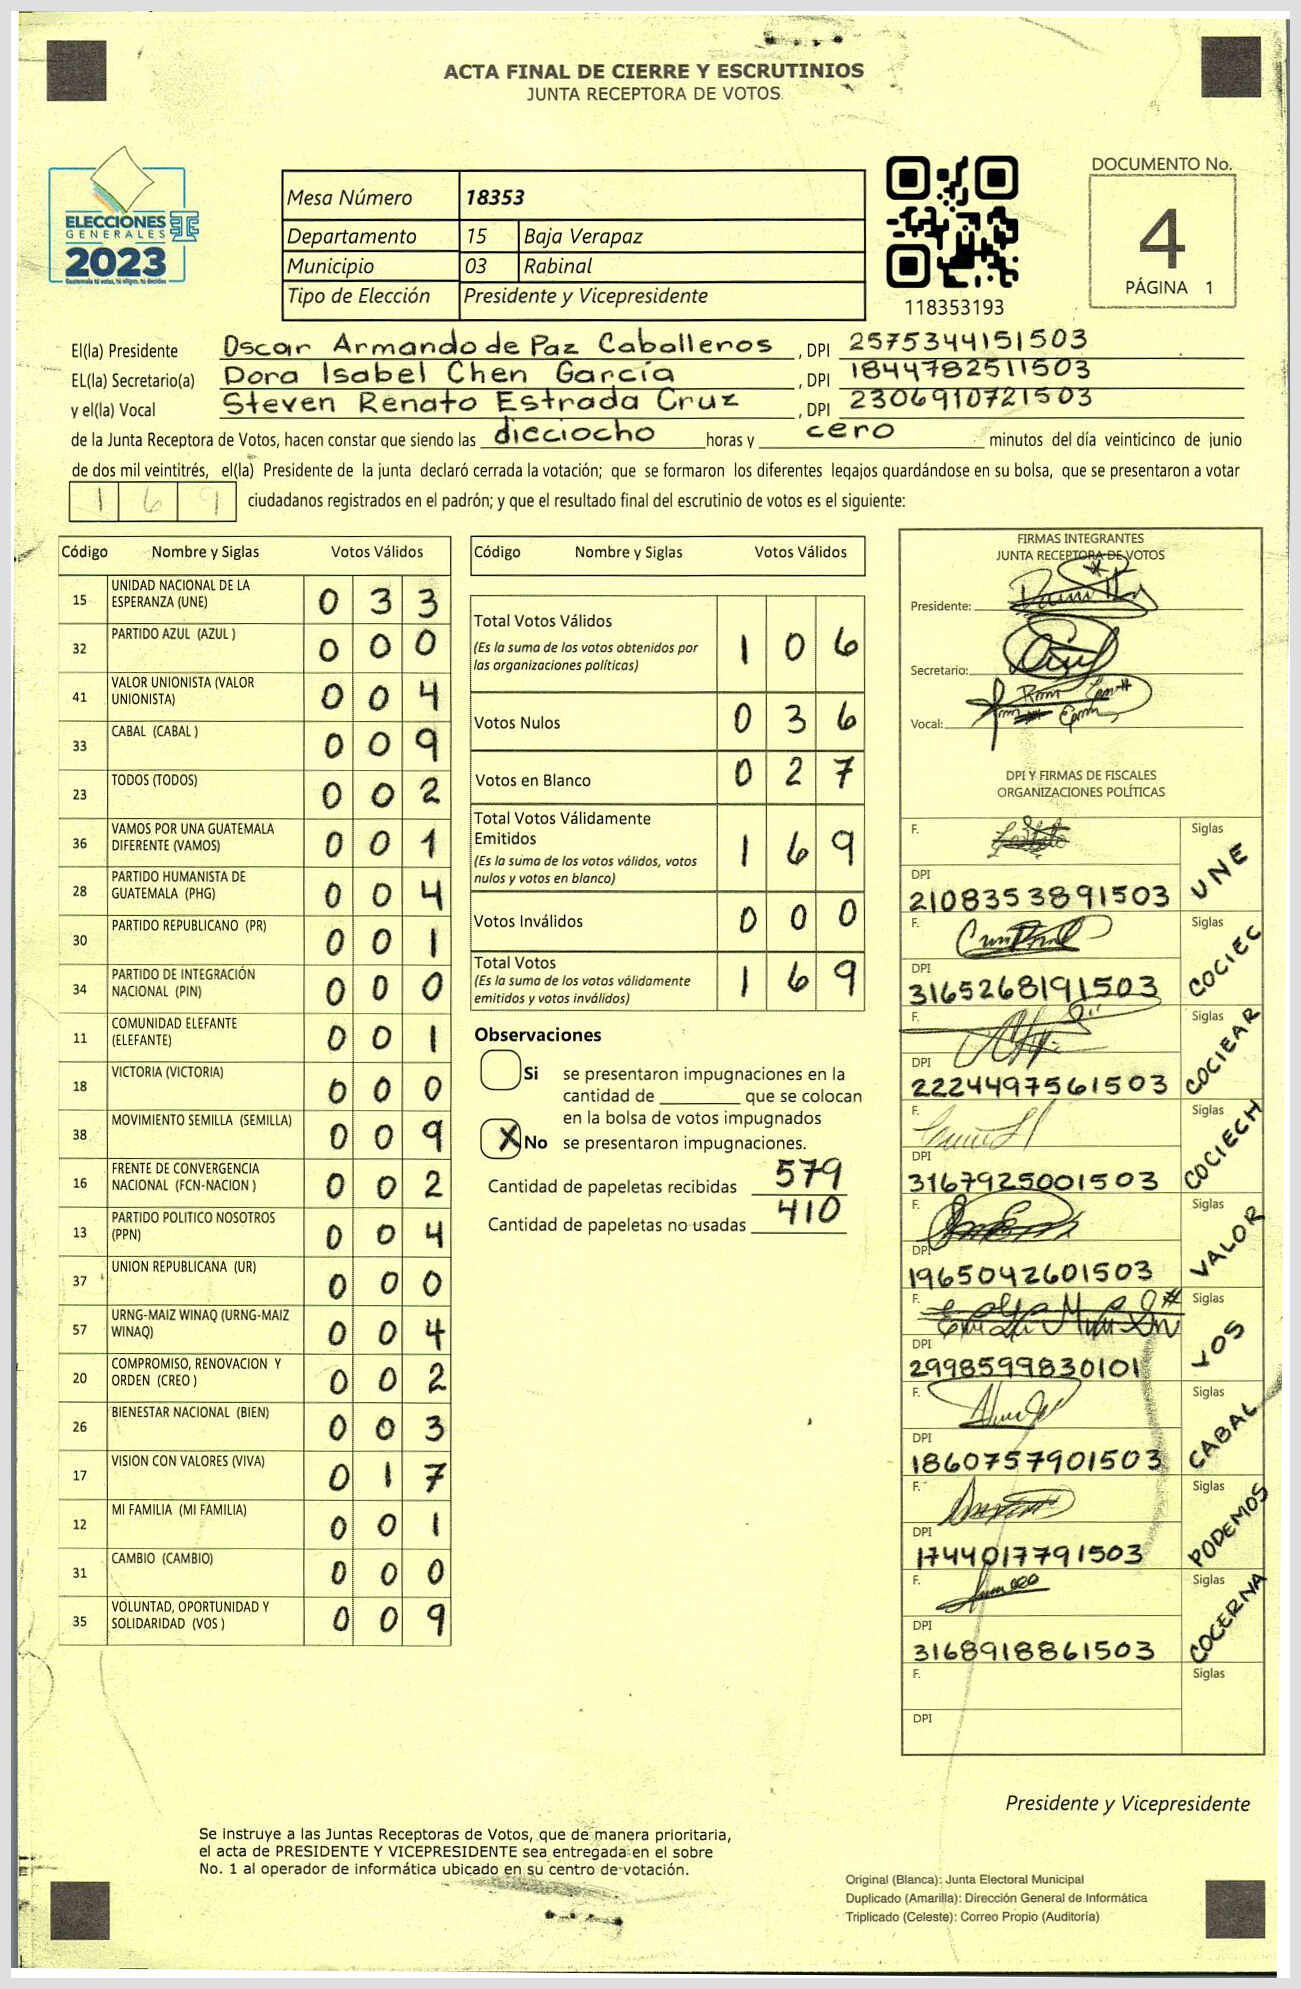 ACTA FINAL DE CIERRE Y ESCRUTINIOS
JUNTA RECEPTORA DE VOTOS
ELECCIONES
GENERALES
2023
Guatemala tú votas, tú eliges, tú decides
Mesa Número 18353
Departamento 15 Baja Verapaz
Municipio 03 Rabinal
Tipo de Elección Presidente y Vicepresidente
118353193
DOCUMENTO No.
4
PÁGINA 1
El(la) Presidente Oscar Armando de Paz Caballeros , DPI 2575344151503
EL(la) Secretario(a) Dora Isabel Chen García , DPI 1844782511503
y el(la) Vocal Steven Renato Estrada Cruz , DPI 2306910721503
de la Junta Receptora de Votos, hacen constar que siendo las dieciocho horas y cero minutos del día veinticinco de junio
de dos mil veintitrés, el(la) Presidente de la junta declaró cerrada la votación; que se formaron los diferentes legajos guardándose en su bolsa, que se presentaron a votar
169 ciudadanos registrados en el padrón; y que el resultado final del escrutinio de votos es el siguiente:
Código Nombre y Siglas Votos Válidos
15 UNIDAD NACIONAL DE LA ESPERANZA (UNE) 0 3 3
32 PARTIDO AZUL (AZUL ) 0 0 0
41 VALOR UNIONISTA (VALOR UNIONISTA) 0 0 4
33 CABAL (CABAL ) 0 0 9
23 TODOS (TODOS) 0 0 2
36 VAMOS POR UNA GUATEMALA DIFERENTE (VAMOS) 0 0 1
28 PARTIDO HUMANISTA DE GUATEMALA (PHG) 0 0 4
30 PARTIDO REPUBLICANO (PR) 0 0 1
34 PARTIDO DE INTEGRACIÓN NACIONAL (PIN) 0 0 0
11 COMUNIDAD ELEFANTE (ELEFANTE) 0 0 1
18 VICTORIA (VICTORIA) 0 0 0
38 MOVIMIENTO SEMILLA (SEMILLA) 0 0 9
16 FRENTE DE CONVERGENCIA NACIONAL (FCN-NACION ) 0 0 2
13 PARTIDO POLITICO NOSOTROS (PPN) 0 0 4
37 UNION REPUBLICANA (UR) 0 0 0
57 URNG-MAIZ WINAQ (URNG-MAIZ WINAQ) 0 0 4
20 COMPROMISO, RENOVACION Y ORDEN (CREO ) 0 0 2
26 BIENESTAR NACIONAL (BIEN) 0 0 3
17 VISION CON VALORES (VIVA) 0 1 7
12 MI FAMILIA (MI FAMILIA) 0 0 1
31 CAMBIO (CAMBIO) 0 0 0
35 VOLUNTAD, OPORTUNIDAD Y SOLIDARIDAD (VOS ) 0 0 9
Código Nombre y Siglas Votos Válidos
Total Votos Válidos 1 0 6
(Es la suma de los votos obtenidos por
las organizaciones políticas)
Votos Nulos 0 3 6
Votos en Blanco 0 2 7
Total Votos Válidamente
Emitidos 1 6 9
(Es la suma de los votos válidos, votos
nulos y votos en blanco)
Votos Inválidos 0 0 0
Total Votos 1 6 9
(Es la suma de los votos válidamente
emitidos y votos inválidos)
Observaciones
Si se presentaron impugnaciones en la
cantidad de ________ que se colocan
en la bolsa de votos impugnados
X No se presentaron impugnaciones.
Cantidad de papeletas recibidas 579
Cantidad de papeletas no usadas 410
FIRMAS INTEGRANTES
JUNTA RECEPTORA DE VOTOS
Presidente:
Secretario:
Vocal:
DPI Y FIRMAS DE FISCALES
ORGANIZACIONES POLÍTICAS
F. Siglas UNE
DPI 2108353891503
F. Siglas COCIEC
DPI 3165268191503
F. Siglas COCIEAR
DPI 2224497561503
F. Siglas COCIECH
DPI 3167925001503
F. Siglas VALOR
DPI 1965042601503
F. Siglas
DPI 2998599830101
F. Siglas CABAL
DPI 1860757901503
F. Siglas PODEMOS
DPI 1744017791503
F. Siglas COCERNA
DPI 3168918861503
F. Siglas
DPI
Presidente y Vicepresidente
Se instruye a las Juntas Receptoras de Votos, que de manera prioritaria,
el acta de PRESIDENTE Y VICEPRESIDENTE sea entregada en el sobre
No. 1 al operador de informática ubicado en su centro de votación.
Original (Blanca): Junta Electoral Municipal
Duplicado (Amarilla): Dirección General de Informática
Triplicado (Celeste): Correo Propio (Auditoría)